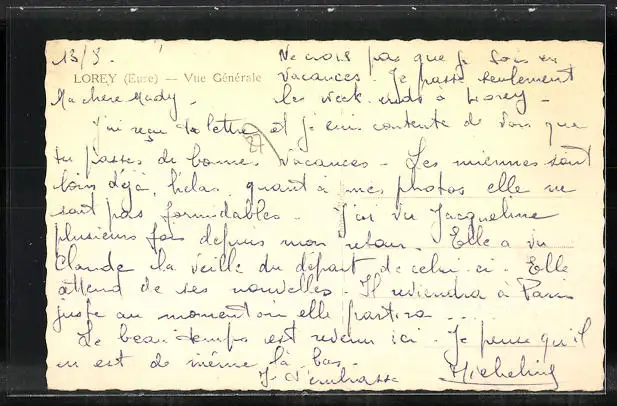 13/8.
Ne crois pas que je sois en
LOREY (Eure) — Vue Générale
vacances. Je passe seulement
Ma chère Mady,
les week-ends à Lorey -
J'ai reçu ta lettre et je suis contente de voir que
tu passes de bonnes vacances - Les miennes sont
loin déjà, hélas, quant à mes photos elle ne
sont pas formidables. J'ai vu Jacqueline
plusieurs fois depuis mon retour. Elle a vu
Claude la veille du départ de celui-ci. Elle
attend de ses nouvelles - Il reviendra à Paris
juste au moment où elle partira ...
Le beau temps est revenu ici. Je pense qu'il
en est de même là-bas.
Je t'embrasse
Micheline